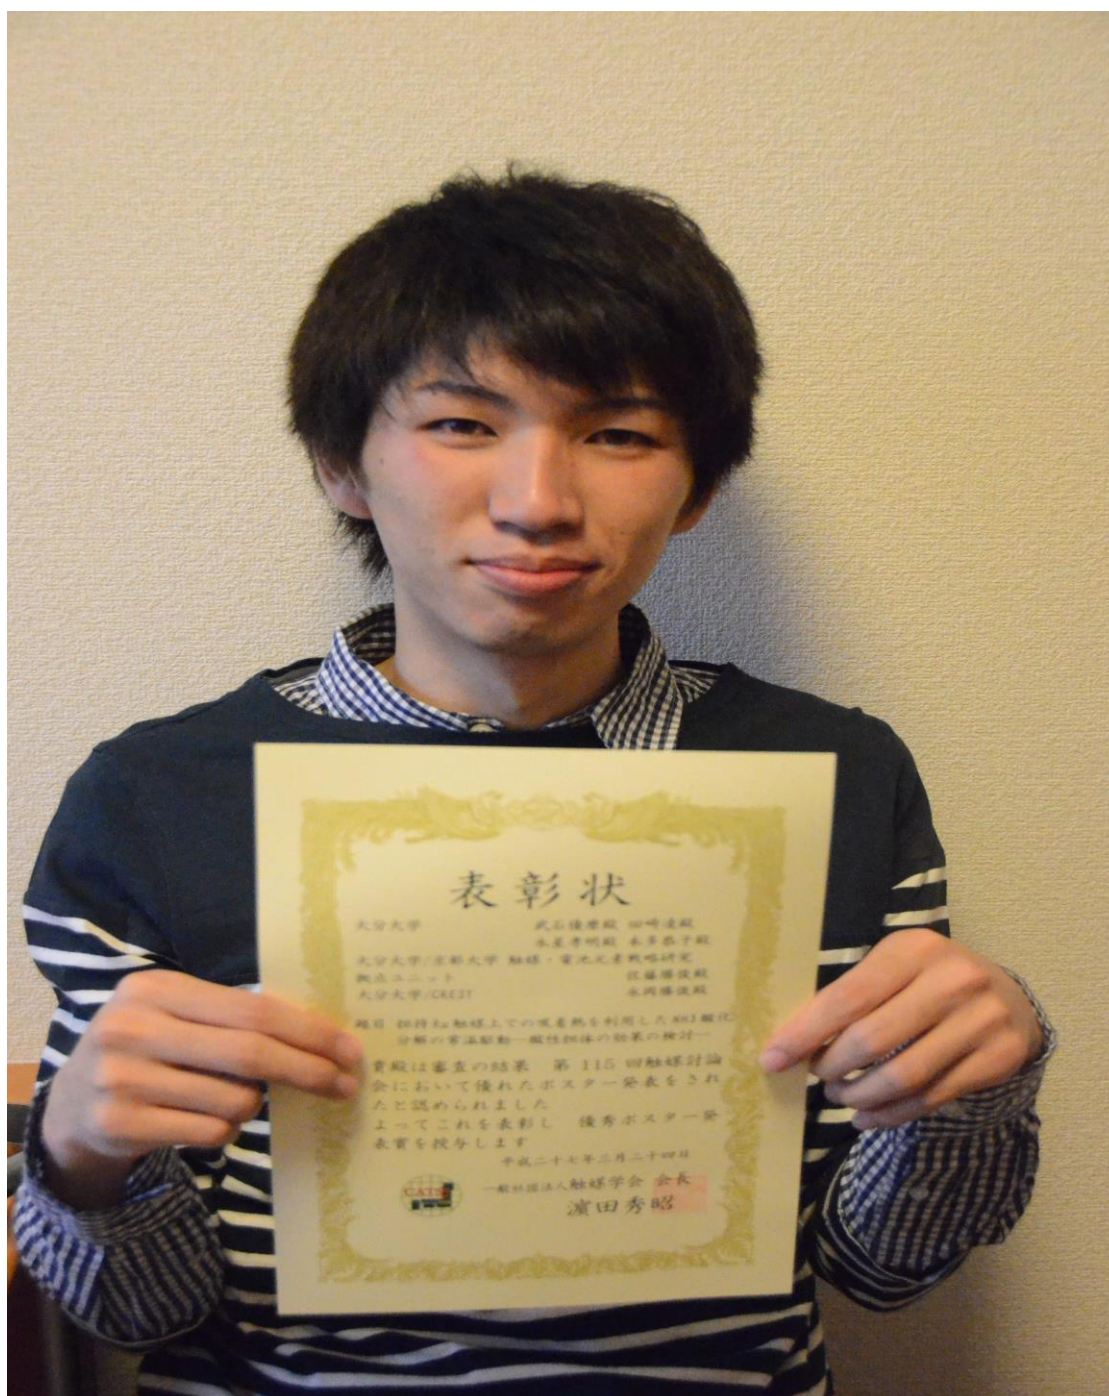 表彰状
大分大学 武石優磨殿 田崎凌殿
永星孝明殿 本多恭子殿
大分大学/京都大学 触媒・電池元素戦略研究
拠点ユニット 佐藤勝俊殿
大分大学/CREST 永岡勝俊殿
題目 担持Ru触媒上での吸着熱を利用したNH3酸化
分解の常温駆動―酸性担体の効果の検討―
貴殿は審査の結果 第115回触媒討論
会において優れたポスター発表をされ
たと認められました
よってこれを表彰し 優秀ポスター発
表賞を授与します
平成二十七年三月二十四日
一般社団法人触媒学会 会長
濵田秀昭
CATSJ